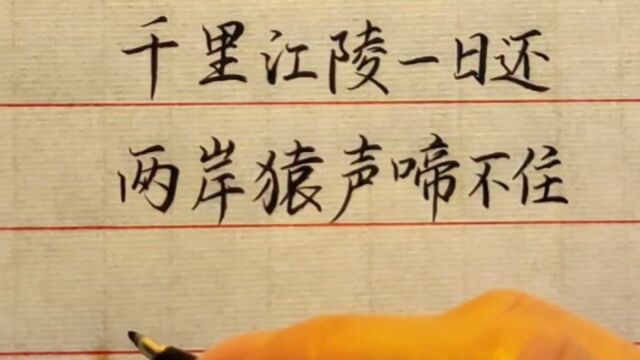 千里江陵一日还
两岸猿声啼不住